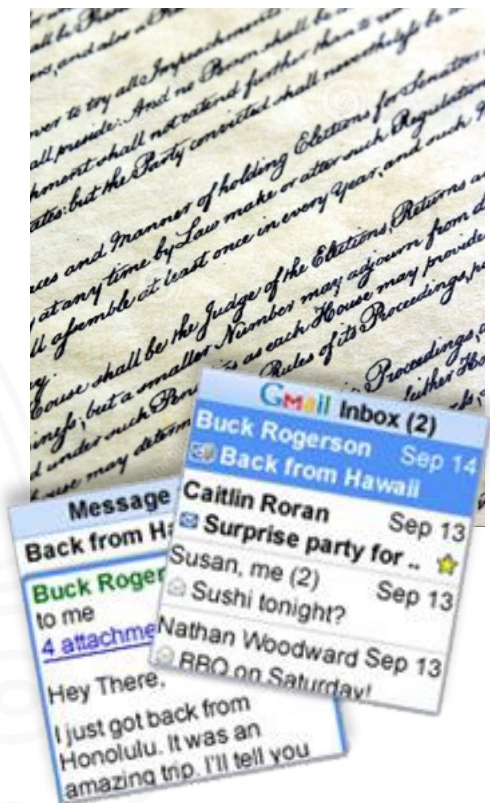 all be
ver to try all Impeachments
all preside: And no Person shall be
ment shall not extend further than to
but the Party convicted shall nevertheless be
and Manner of holding Elections for Senators
at any time by Law make or alter such Regulations
assemble at least once in every Year, and such
House shall be the Judge of the Elections, Returns
but a smaller Number may adjourn from
under such as each House may provide
House may determ Rules of its Proceedings,
Proceedings,
Gmail Inbox (2)
Buck Rogerson Sep 14
Back from Hawaii
Caitlin Roran Sep 13
Surprise party for ..
Susan, me (2) Sep 13
Sushi tonight?
Nathan Woodward Sep 13
BBQ on Saturday!
Message
Back from Ha
Buck Roger
to me
4 attachme
Hey There,
I just got back from
Honolulu. It was an
amazing trip. I'll tell you